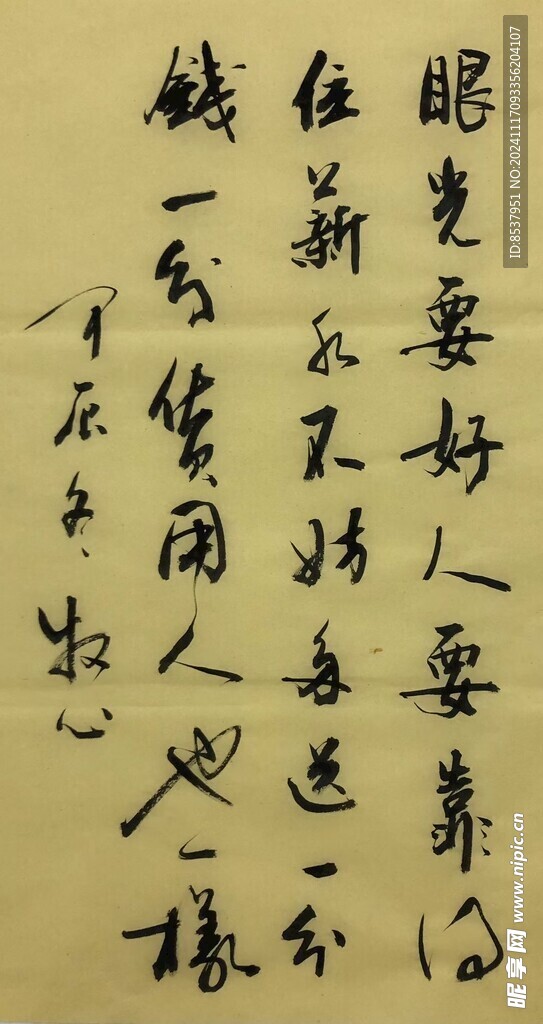 眼光要好人要靠得
住薪水不妨多送一分
錢一分貨用人也一樣
甲辰冬牧心
ID:8537951 NO:20241117093356204107
昵享网 www.nipic.cn